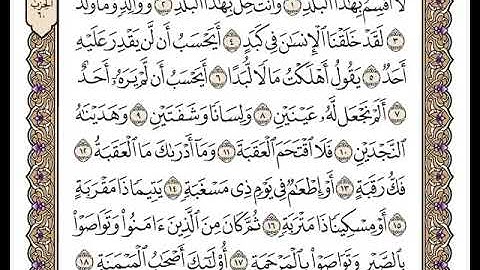 لَا أُقْسِمُ بِهَٰذَا الْبَلَدِ ۝١ وَأَنتَ حِلٌّ بِهَٰذَا الْبَلَدِ ۝٢ وَوَالِدٍ وَمَا وَلَدَ
۝٣ لَقَدْ خَلَقْنَا الْإِنسَانَ فِي كَبَدٍ ۝٤ أَيَحْسَبُ أَن لَّن يَقْدِرَ عَلَيْهِ
أَحَدٌ ۝٥ يَقُولُ أَهْلَكْتُ مَالًا لُّبَدًا ۝٦ أَيَحْسَبُ أَن لَّمْ يَرَهُ أَحَدٌ
۝٧ أَلَمْ نَجْعَل لَّهُ عَيْنَيْنِ ۝٨ وَلِسَانًا وَشَفَتَيْنِ ۝٩ وَهَدَيْنَاهُ
النَّجْدَيْنِ ۝١٠ فَلَا اقْتَحَمَ الْعَقَبَةَ ۝١١ وَمَا أَدْرَاكَ مَا الْعَقَبَةُ ۝١٢
فَكُّ رَقَبَةٍ ۝١٣ أَوْ إِطْعَامٌ فِي يَوْمٍ ذِي مَسْغَبَةٍ ۝١٤ يَتِيمًا ذَا مَقْرَبَةٍ
۝١٥ أَوْ مِسْكِينًا ذَا مَتْرَبَةٍ ۝١٦ ثُمَّ كَانَ مِنَ الَّذِينَ آمَنُوا وَتَوَاصَوْا
بِالصَّبْرِ وَتَوَاصَوْا بِالْمَرْحَمَةِ ۝١٧ أُولَٰئِكَ أَصْحَابُ الْمَيْمَنَةِ ۝١٨
الحزب
٦٠